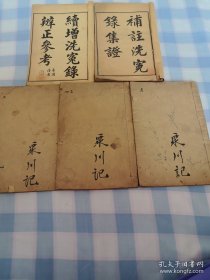 補註洗冤
錄集證
續增洗冤錄
辨正參考
泉川記
泉川記
泉川記
孔夫子旧书网